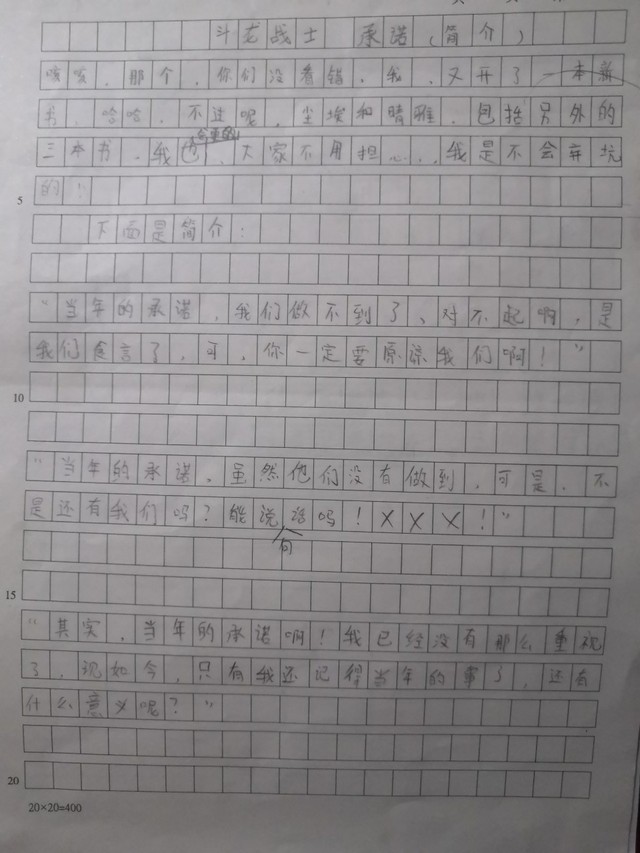 斗龙战士 承诺(简介)
咳咳,那个,你们没看错,我,又开了一本新
书,哈哈,不过呢,尘埃和晴雅,包括另外的
三本书,我也会更的,大家不用担心,我是不会弃坑
5 的!
下面是简介:
“当年的承诺,我们做不到了、对不起啊,是
我们食言了,可,你一定要原谅我们啊!”
10
“当年的承诺,虽然他们没有做到,可是,不
是还有我们吗?能说句话吗!XXX!”
15
“其实,当年的承诺啊!我已经没有那么重视
了,现如今,只有我还记得当年的事了,还有
什么意义呢?”
20
20×20=400